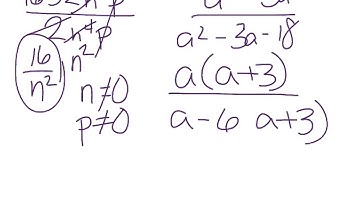 2n⁴p
16/n² n²
n≠0
p≠0
a² - 3a - 18
a(a+3)
a-6 a+3)